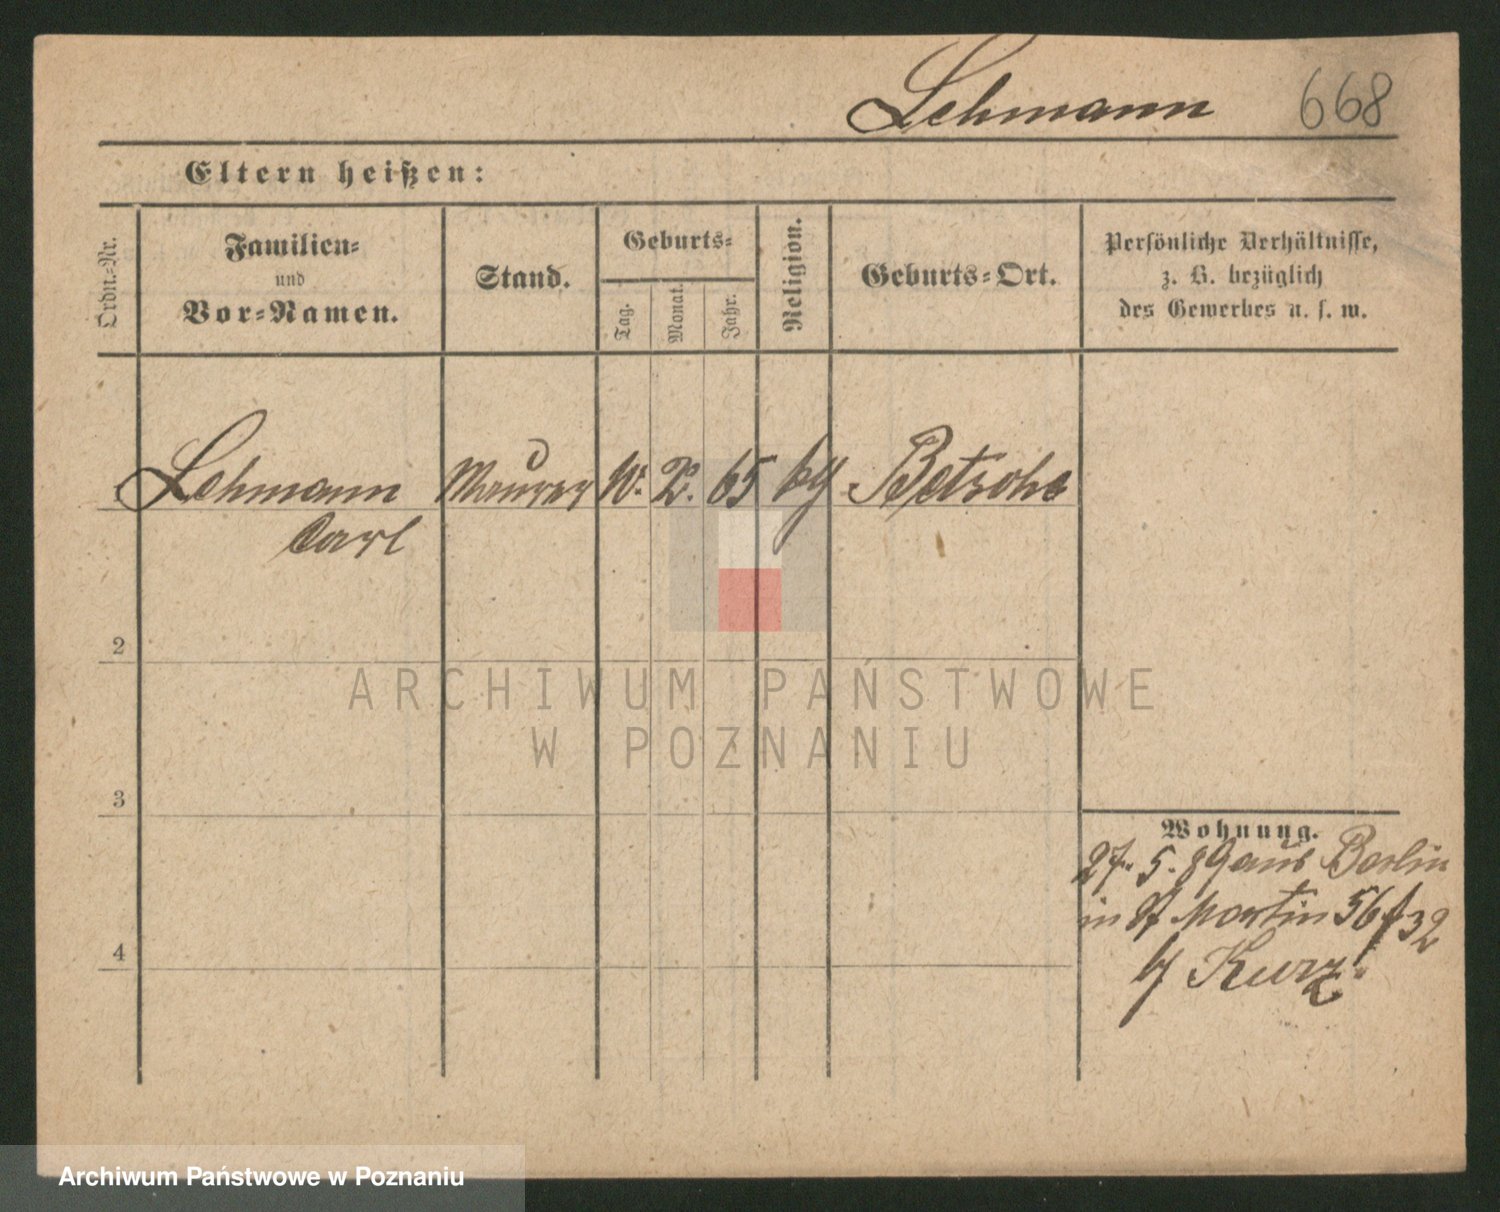 Lehmann 668
Eltern heißen:
Ordn.-Nr.
Familien-
und
Vor-Namen.
Stand.
Geburts-
Tag.
Monat.
Jahr.
Religion.
Geburts-Ort.
Persönliche Verhältnisse,
z. B. bezüglich
des Gewerbes u. s. w.
Lehmann Maurer 10. 2. 65 Betsche
Carl
2
3
4
Wohnung.
27. 5. 89 aus Berlin
in St Martin 56/32
b/ Kurz
ARCHIWUM PAŃSTWOWE
W POZNANIU
Archiwum Państwowe w Poznaniu